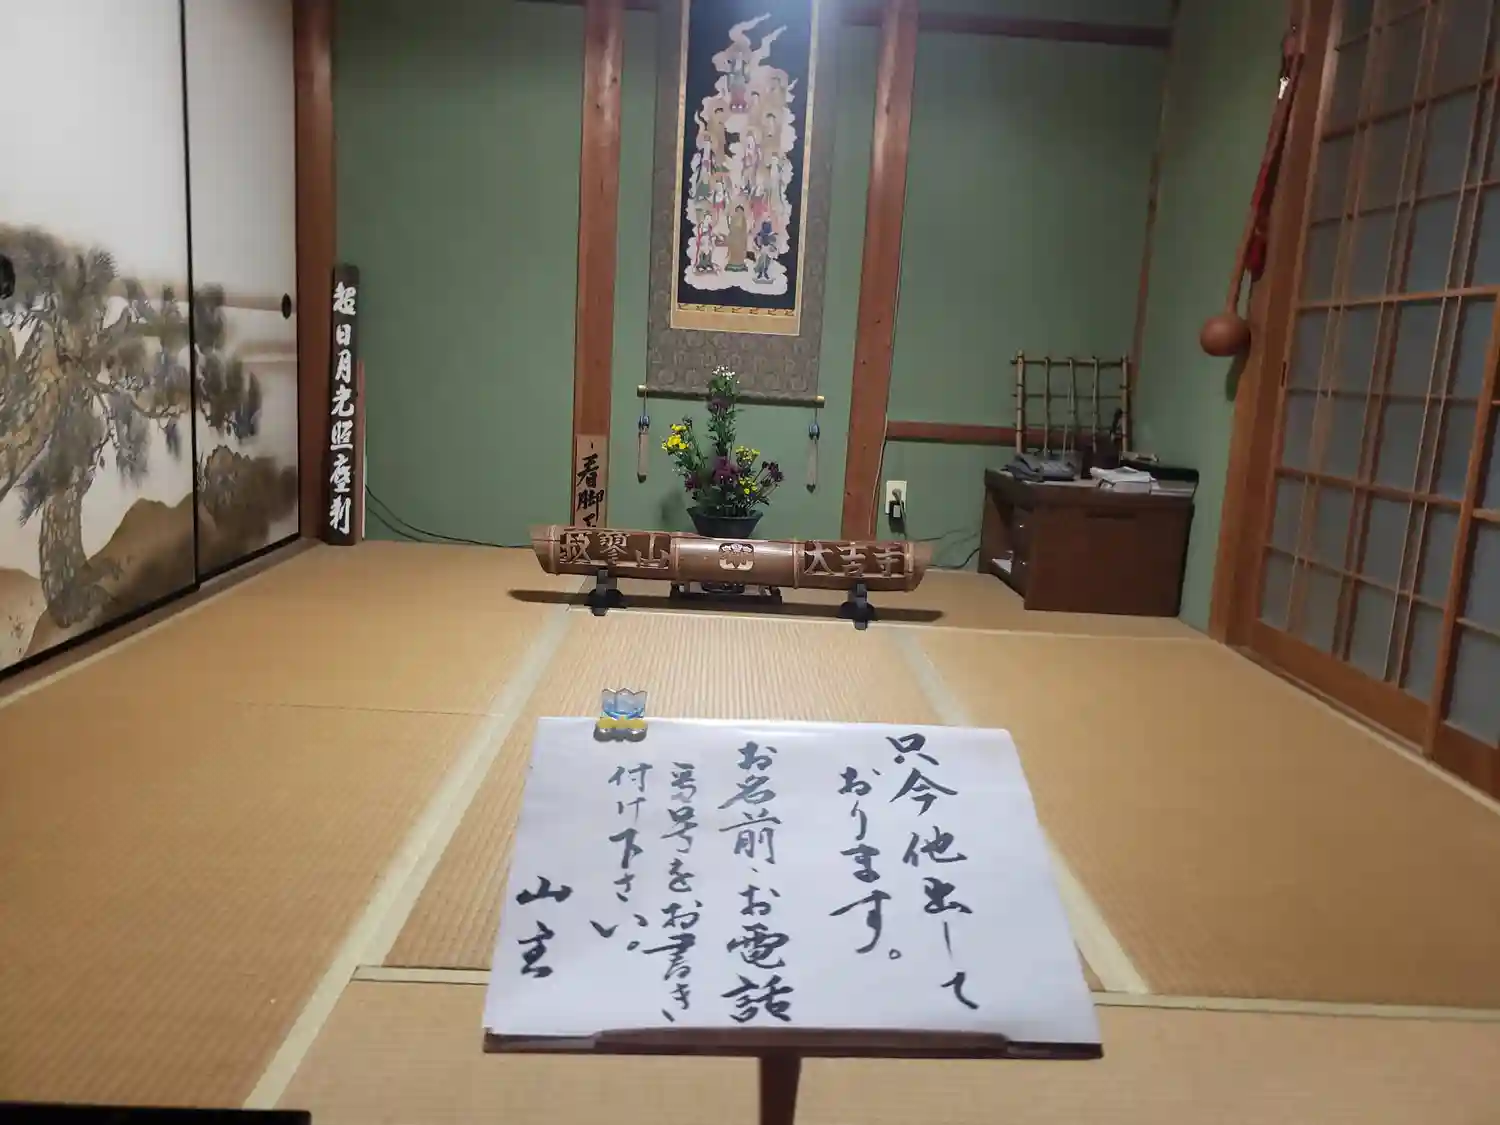 只今他出して
おります。
お名前、お電話
番号をお書き
付け下さい。
山主
超日月光照塵刹
看脚下
寂寥山
大吉寺